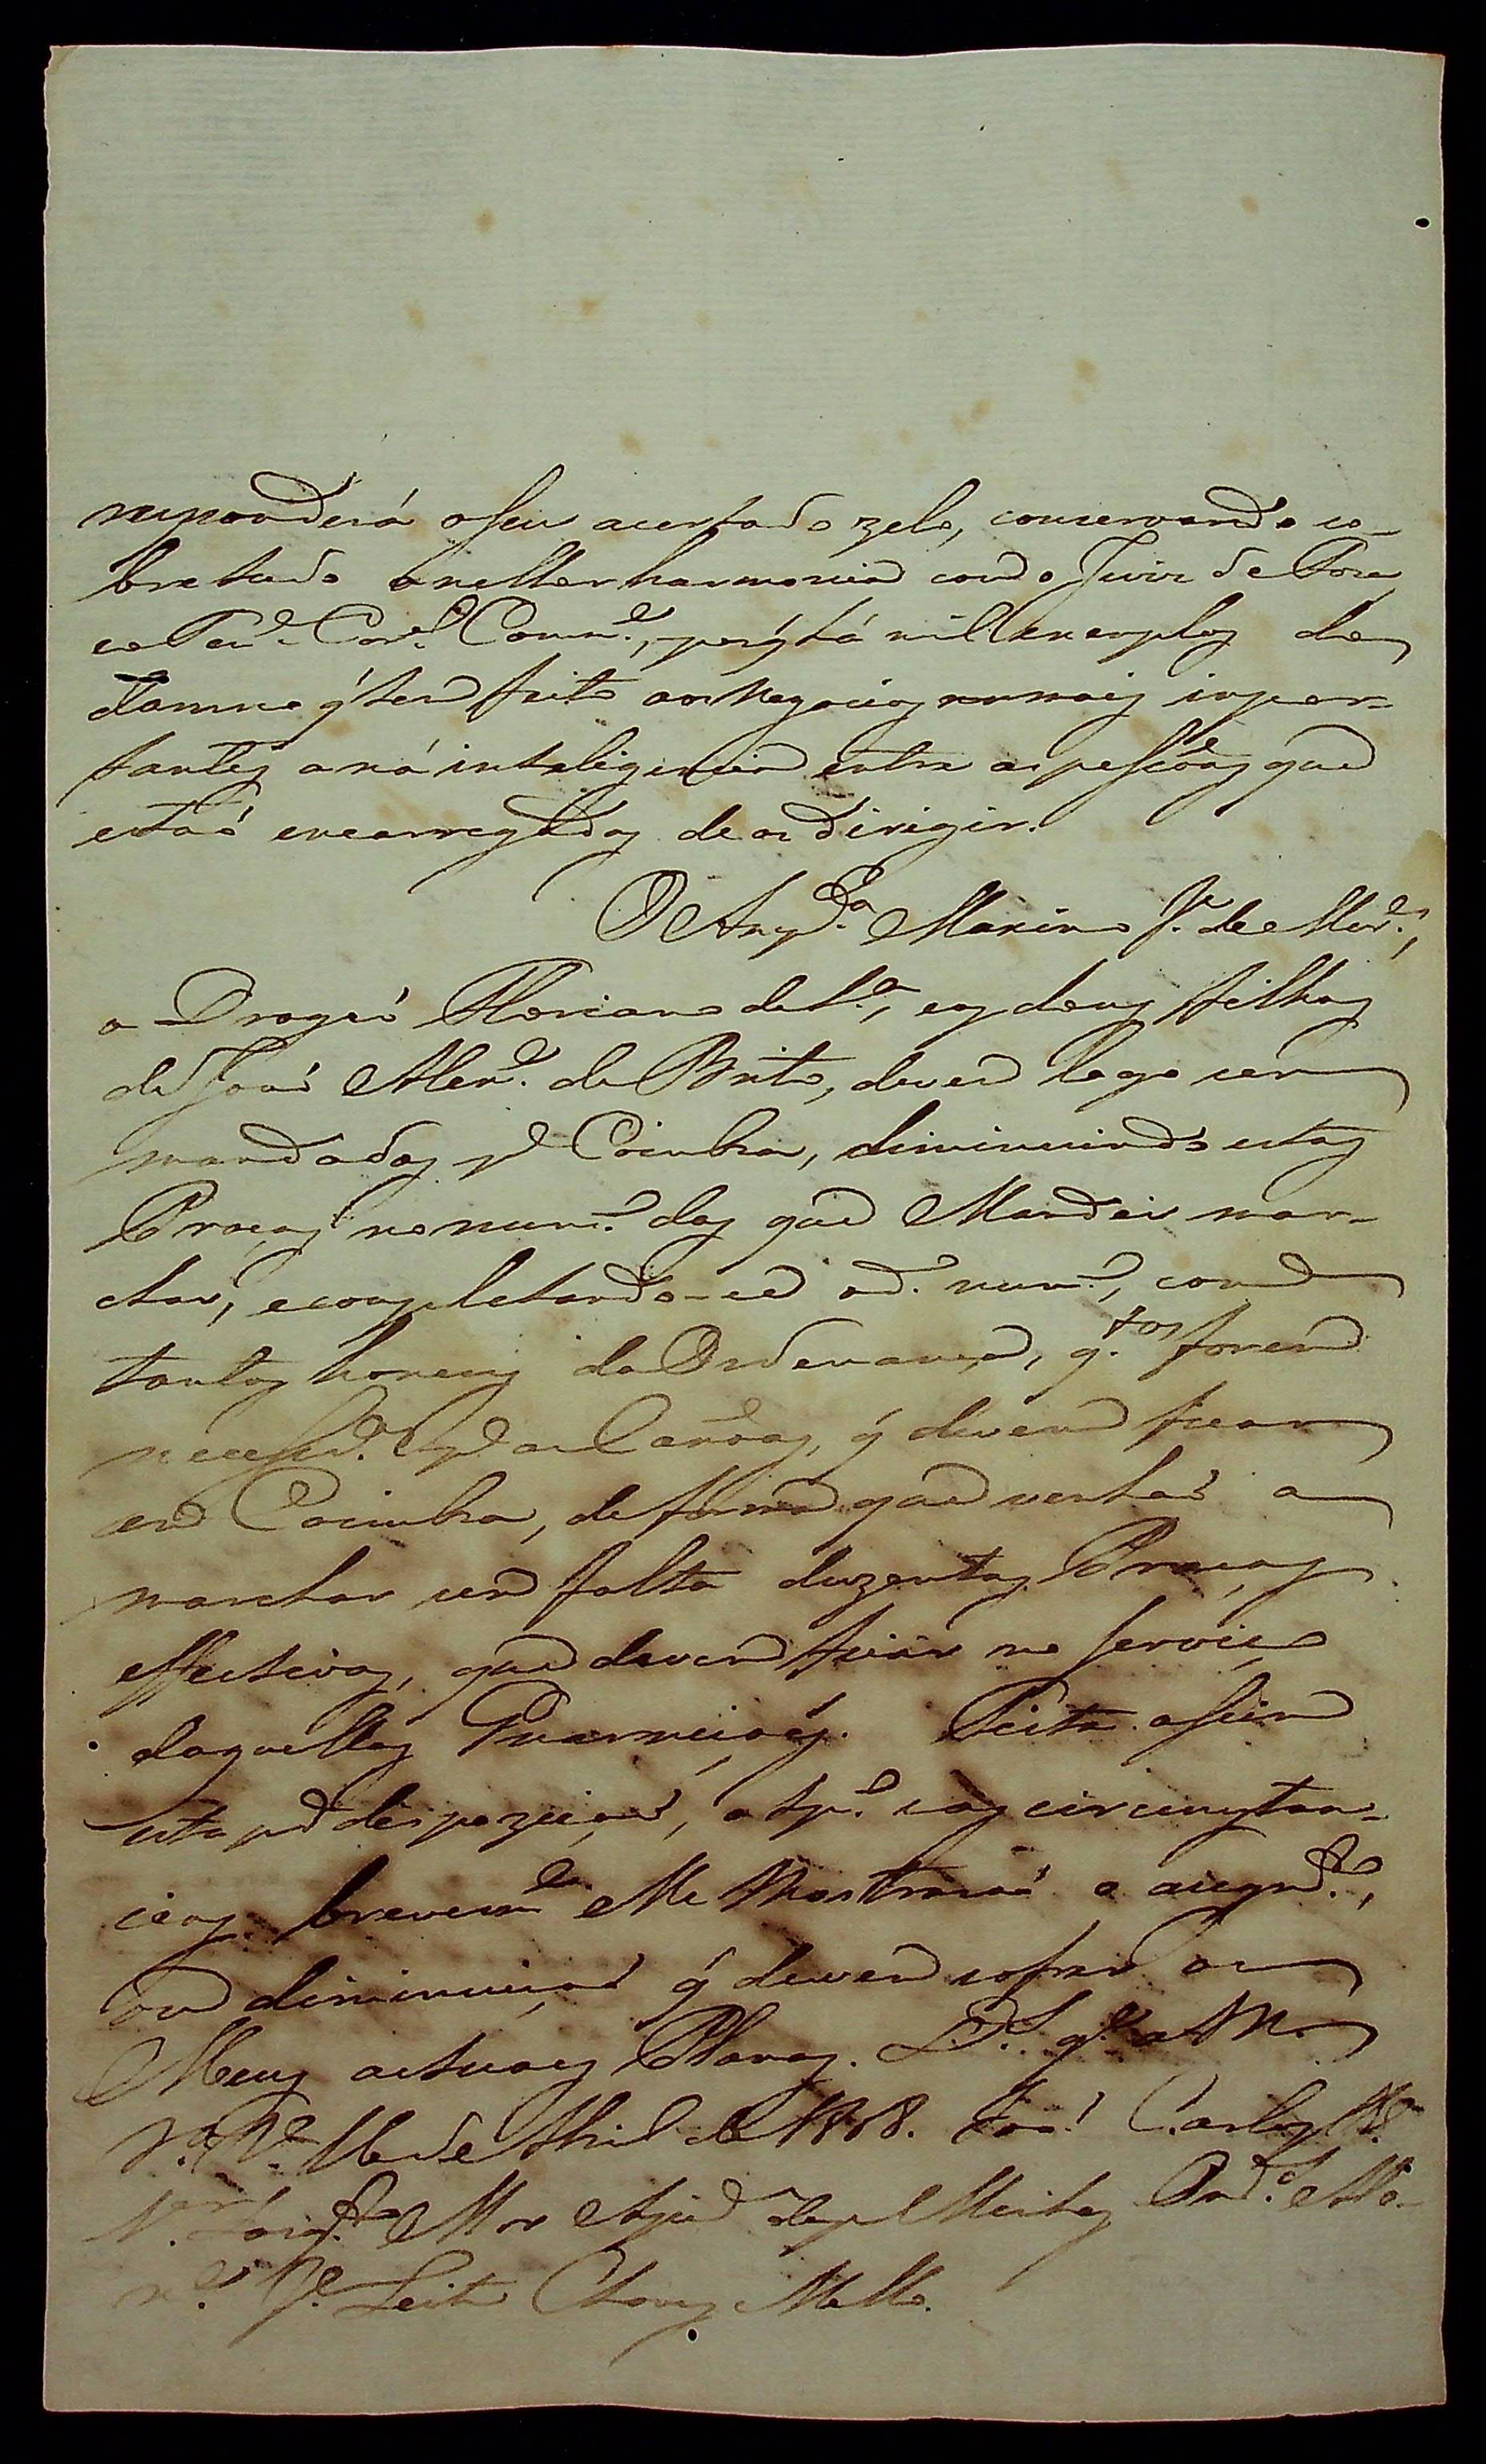 responderá o seu acertado zelo, conservando so-
bretudo a melhor harmonia com o Juiz de Fora,
e o Ten.e Cor.el Comm.e, porq̃ há mil exemplos do
damno q̃ tem feito aos Negocios mais impor-
tantes a má inteligencia entre as pessoas que
estaõ encarregadas de os dirigir.
O Ansp.da Maximo J.e de
o Dragaõ Floriano de S.a, e os dous filhos
de Joaõ Alex.e de Brito, devem logo ser
mandados p.a Coimbra, diminuindo estas
Praças no num.o das que Mandei mar-
char, e completando-se o d.o num.o, com
tantos homens da Ordenança, q.tos forem
p.a as Canoas, q̃ devem ficar
em Coimbra, de forma que venhaõ a
marchar sem falta duzentas Praças
effectivas, que devem ficar no serviço
daquellas Guarniçoẽs. Feita assim
esta p.a despoziçaõ, o tp.o e as circunstan-
cias brevem.te Me Mostraraõ o augm.to,
ou diminuiçaõ q̃ devem sofrer os
Meus actuaes Planos. D.s g.e a Vm.
V.a B.a de Abril de 1808. Joaõ Carlos
N. S.r Sarg.to Mor Ajud.e das Ord.s
J.e Leite Chaves Mello.